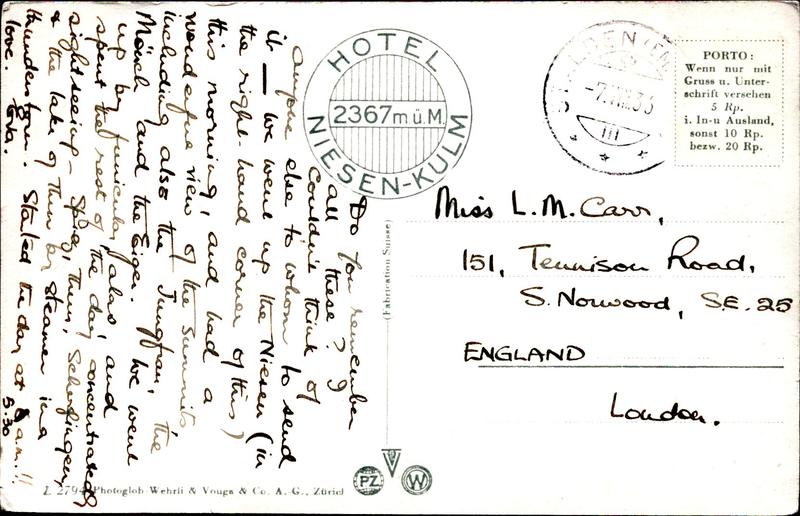 Do you remember
all these? I
couldn't think of
anyone else to whom to send
it — we went up the Niesen (in
the right-hand corner of this)
this morning, and had a
wonderful view of the summits
including also the Jungfrau, the
Mönch and the Eiger. We went
up by funicular, alas! and
spent the rest of the day concentratedly
sightseeing – Spiez, Thun, Scherzligen,
& the lake of Thun by steamer in a
thunderstorm. Started the day at 5.30 a.m.!!
love. Eva.
HOTEL
2367 m ü. M.
NIESEN-KULM
-7.VIII.35
III
PORTO:
Wenn nur mit
Gruss u. Unter-
schrift versehen
5 Rp.
i. In- u Ausland,
sonst 10 Rp.
bezw. 20 Rp.
(Fabrication Suisse)
Miss L. M. Carr,
151, Tennison Road,
S. Norwood, S.E. 25
ENGLAND
London.
PZ
W
L 2794 Photoglob-Wehrli & Vouga & Co. A.-G., Zürich